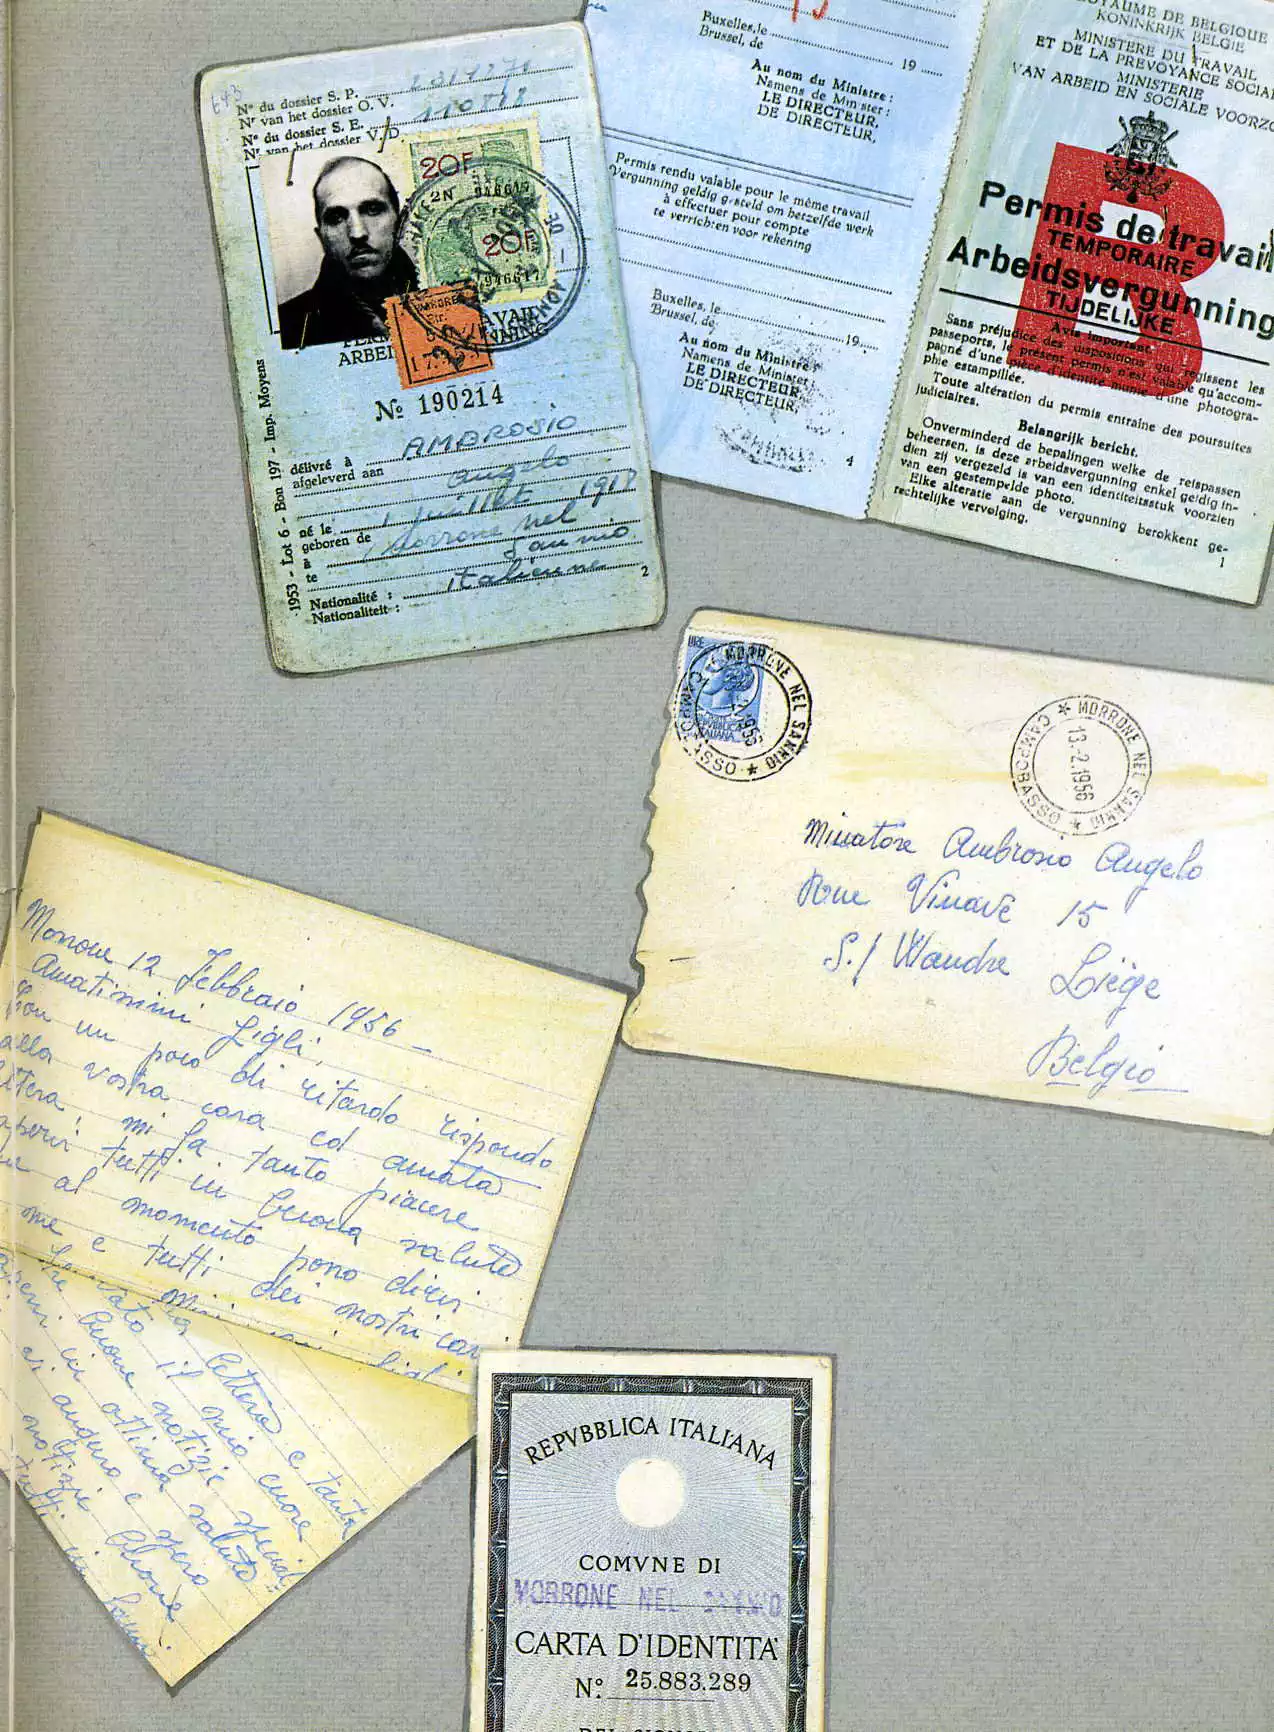 643
Nº du dossier S. P.
Nʳ van het dossier O. V.
Nº du dossier S. E.
Nʳ van het dossier V. D.
20F
2N 946617
20F
946617
ARBEI
Nº 190214
délivré à AMBROSIO
afgeleverd aan Angelo
né le 1 juillet 1918
geboren de
à Morrone nel
te Sannio
Nationalité : italienne
Nationaliteit :
2
1953 - Lot 6 - Bon 197 - Imp. Moyens
Buxelles,le
Brussel, de 19
Au nom du Ministre :
Namens de Minister :
LE DIRECTEUR,
DE DIRECTEUR,
Permis rendu valable pour le même travail
Vergunning geldig gesteld om hetzelfde werk
à effectuer pour compte
te verrichten voor rekening
Buxelles, le
Brussel, de 19
Au nom du Ministre :
Namens de Minister :
LE DIRECTEUR
DE DIRECTEUR,
4
ROYAUME DE BELGIQUE
KONINKRIJK BELGIE
MINISTERE DU TRAVAIL
ET DE LA PREVOYANCE SOCIA
MINISTERIE
VAN ARBEID EN SOCIALE VOORZO
B
Permis de travail
TEMPORAIRE
Arbeidsvergunning
TIJDELIJKE
Avis important.
Sans préjudice des dispositions qui régissent les
passeports, le présent permis n'est valable qu'accom-
pagné d'une pièce d'identité munie d'une photogra-
phie estampillée.
Toute altération du permis entraine des poursuites
judiciaires.
Belangrijk bericht.
Onverminderd de bepalingen welke de reispassen
beheersen, is deze arbeidsvergunning enkel geldig in-
dien zij vergezeld is van een identiteitsstuk voorzien
van een gestempelde photo.
Elke alteratie aan de vergunning berokkent ge-
rechtelijke vervolging.
1
LIRE
REPUBBLICA
ITALIANA
MORRONE NEL SANNIO
CAMPOBASSO
MORRONE NEL SANNIO
CAMPOBASSO
13.-2.1956
Minatore Ambrosio Angelo
Rue Vinavê 15
S./ Wandre Liège
Belgio
Morrone 12 Febbraio 1956 –
Amatissimi Figli,
Con un poco di ritardo rispondo
alla vostra cara ed amata
lettera, mi fa tanto piacere
sapervi tutti in buona salute
al momento pono dirvi
me e tutti dei nostri cari
lettera e tante
vato il mio cuore
buone notizie
in ottima salute
spero
notizie buone
tutti
REPVBBLICA ITALIANA
COMVNE DI
MORRONE NEL SANNIO
CARTA D'IDENTITA'
Nº: 25.883.289